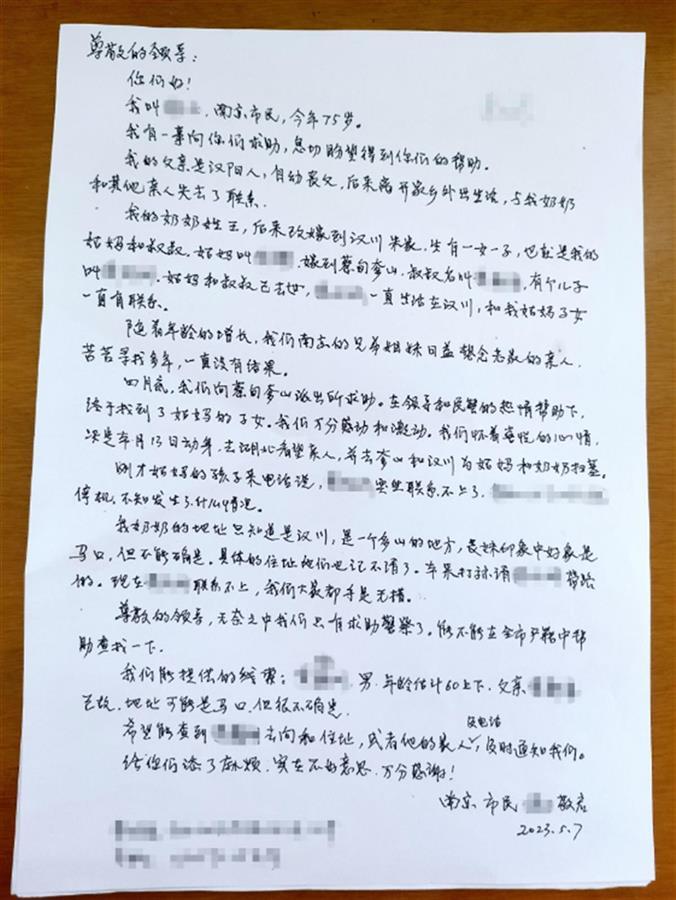 尊敬的领导:
你们好!
我叫 ,南京市民,今年75岁。
我有一事向你们求助,急切盼望得到你们的帮助。
我的父亲是汉阳人,自幼丧父,后来离开家乡外出生活,与我奶奶
和其他亲人失去了联系.
我的奶奶姓王,后来改嫁到汉川朱家.生有一女一子,也就是我的
姑妈和叔叔.姑妈叫 .嫁到蔡甸奓山.叔叔名叫 ,有个儿子
叫 .姑妈和叔叔已去世, 一直生活在汉川,和我姑妈子女
一直有联系.
随着年龄的增长,我们南京的兄弟姐妹日益想念老家的亲人,
苦苦寻找多年,一直没有结果。
四月底,我们向蔡甸奓山派出所求助。在领导和民警的热情帮助下,
终于找到了姑妈的子女。我们万分感动和激动。我们怀着喜悦的心情,
决定本月13日动身,去湖北看望亲人,并去奓山和汉川为姑妈和奶奶扫墓。
刚才姑妈的孩子来电话说, 突然联系不上了.
停机,不知发生了什么情况。
我奶奶的地址只知道是汉川,是一个多山的地方,表妹印象中好象是
马口,但不能确定。具体的住址他们也记不清了。本来打算请 带路
的。现在 联系不上,我们大家都手足无措。
尊敬的领导,无奈之中我们只有求助警察了。能不能在全市户籍中帮
助查找一下.
我们能提供的线索: 男.年龄估计60上下.父亲
已故.地址可能是马口,但很不确定.
希望能查到 去向和住址,或者他的家人及电话,及时通知我们。
给你们添了麻烦.实在不好意思.万分感谢!
南京市民 敬启
2023.5.7